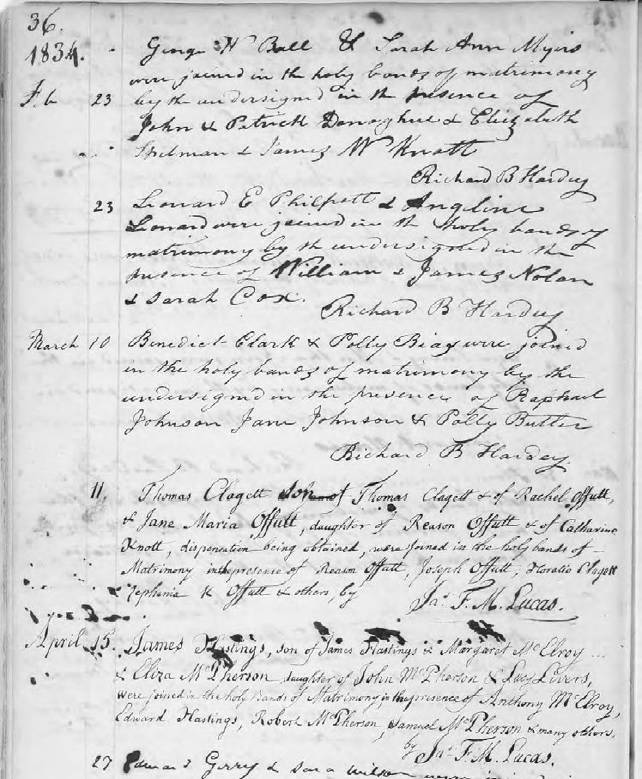 36.
1834. George W Ball & Sarah Ann Myers
were joined in the holy bands of matrimony
Feb 23 by the undersigned in the presence of
John & Patrick Donoghue & Elizabeth
Spelman & James W Knott
Richard B Hardey
23 Leonard E Philpott & Angeline
Leonard were joined in the holy bands of
matrimony by th undersigned in the
presence of William & James Nolan
& Sarah Cox.
Richard B Hardey
March 10 Benedict Clark & Polly were joined
in the holy bands of matrimony by the
undersigned in the presence of Raphael
Johnson Jane Johnson & Polly Butler
Richard B Hardey
11, Thomas Clagett son of Thomas Clagett & of Rachel Offutt,
& Jane Maria Offutt, daughter of Reason Offutt & of Catharine
Knott, dispensation being obtained, were joined in the holy bands of
Matrimony in the presence of Reason Offutt, Joseph Offutt, Horatio Clagett
Zephinia K Offutt & others, by
Jas. F. M. Lucas.
April 15. James Hastings, son of James Hastings & Margaret McElroy
& Eliza McPherson, daughter of John McPherson & Lucy Livers,
were joined in the holy bands of Matrimony in the presence of Anthony McElroy,
Edward Hastings, Robert McPherson, Samuel McPherson & many others.
by Jas. F. M. Lucas.
27 Edward Gerry & Sara Wilson were